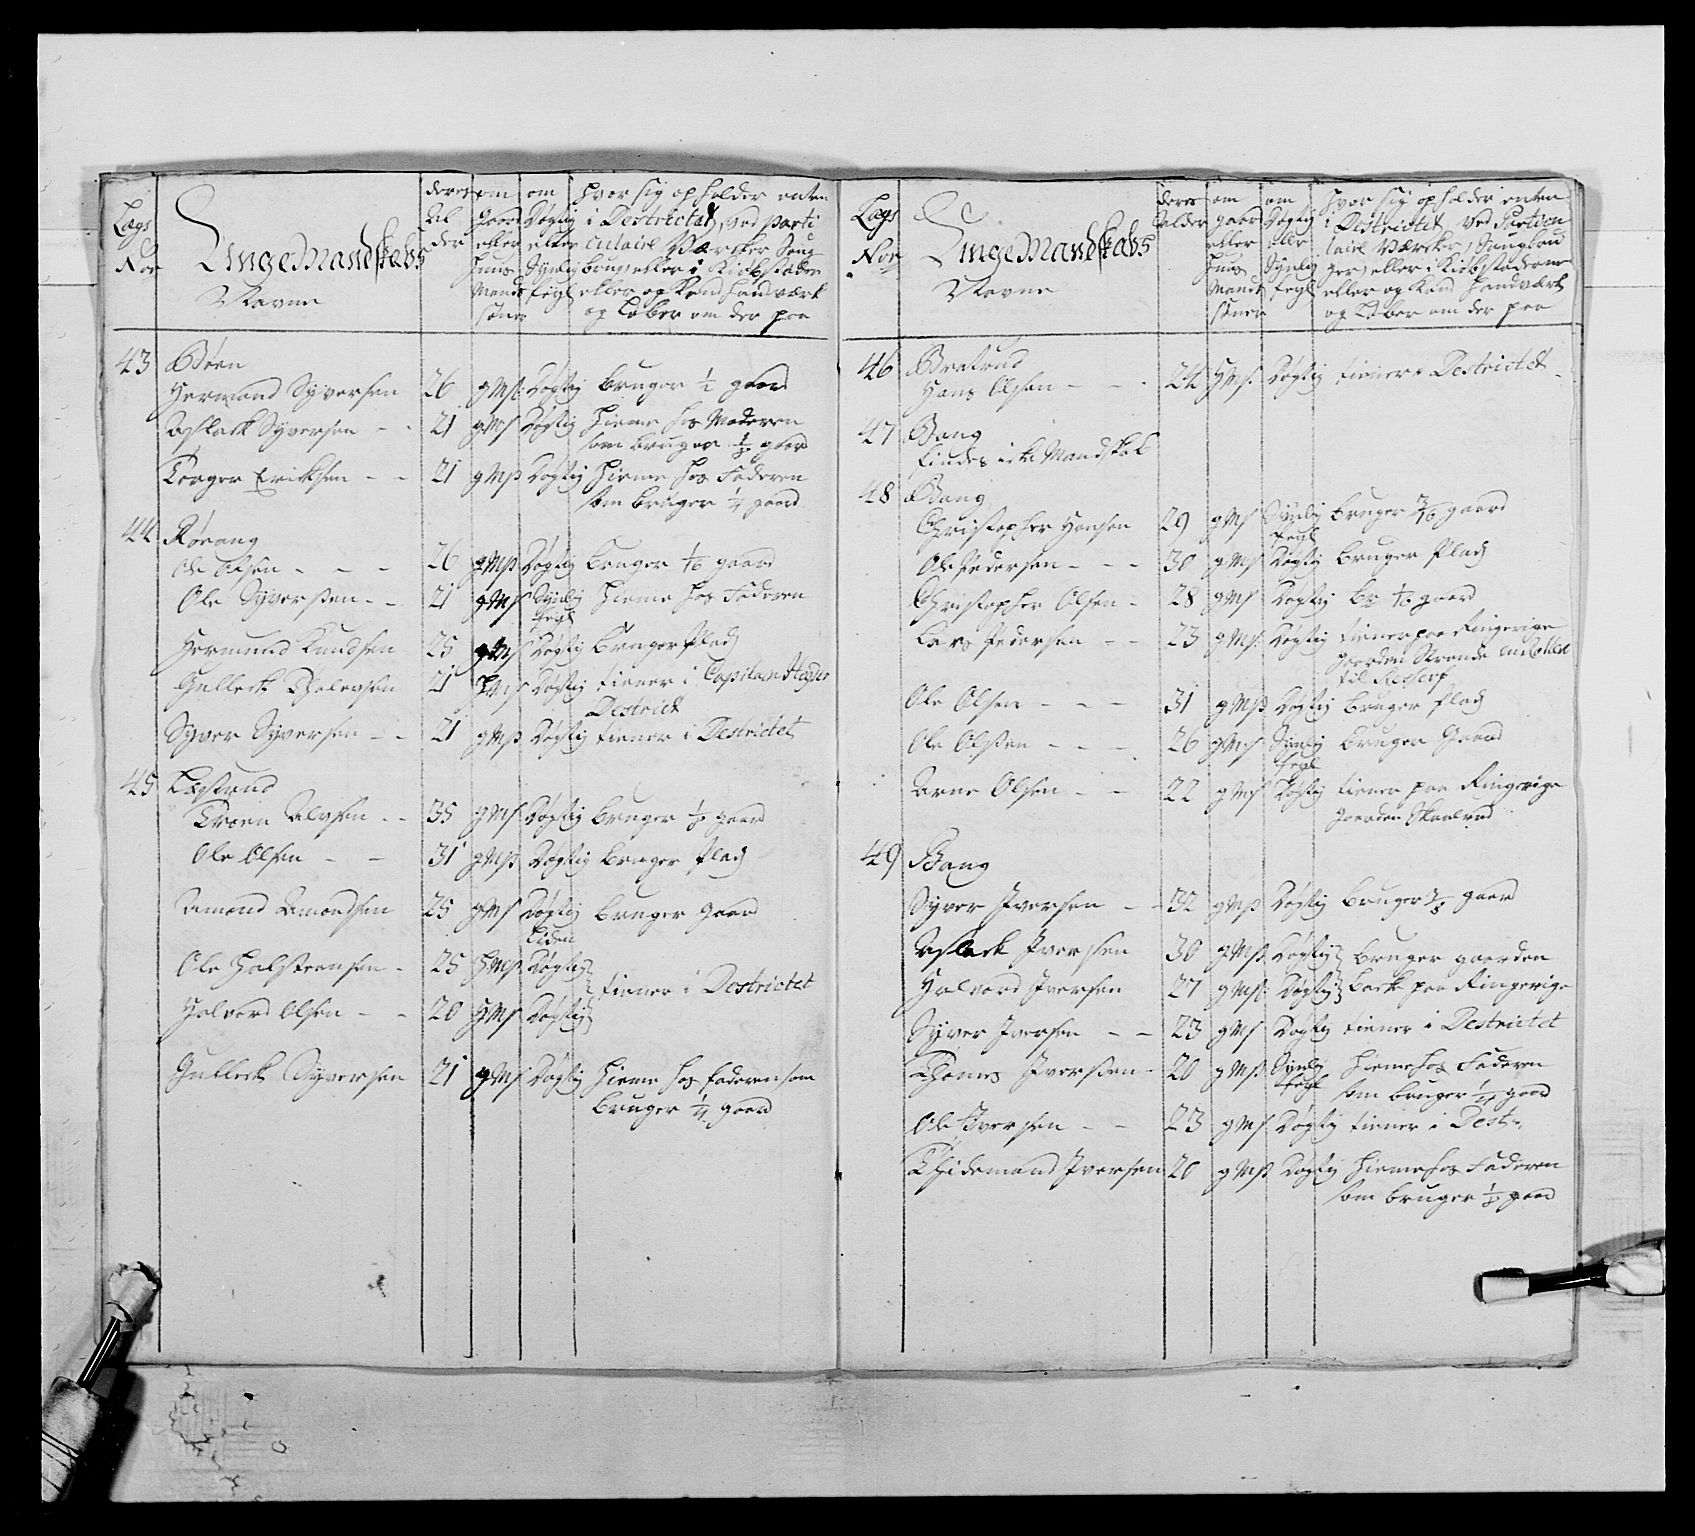 Lægs
Nor
UngeMandskabs
Navne
deres
Al
der
om
Gaard
eller
Huus
Mands
sønner
om
Døgtig
eller
Synlig
fegl
hvor sig opholder enten
i Destrictet, ved Parti
culaire Værcker Saug
brug, eller i Kiøbstæder
eller og kand handværk
og løber om der paa
43 Bøen
Hermand Syversen 26 gMs: Døgtig bruger ½ gaard
Aslack Syversen - - 21 gMs Døgtig hieme hos Moderen
som bruger ½ gaard
Torger Erichsen - - 21 gMs Døgtig hieme hos Faderen
som bruger ¼ gaard
44 Rørang
Ole Olsen - - - 26 gMs Døgtig bruger 1/6 gaard
Ole Syversen - - 21 gMs Synlig hieme hos Faderen
fegl
Hermund Knudsen 25 gMs Døgtig bruger Plads
Gulleck 21 HMs Døgtig tiener i Capitain
Destrict
Syver Syversen - - 21 gMs Døgtig tiener i Destrictet
45
35 gMs Døgtig bruger ½ gaard
Ole Olsen - - 31 gMs Døgtig bruger Plads
Amond Amondsen 25 gMs Døgtig bruger gaard
liden
Ole Halsteensen - 25 HMs Døgtig
tiener i Destrictet
Halvord Olsen - - 20 HMs Døgtig
Gulleck Syversen 21 gMs Døgtig hieme hos faderen som
bruger ¼ gaard
Lægs
Nor
UngeMandskabs
Navne
deres
Alder
om
gaard
eller
Huus
Mands
sønner
om
Døgtig
eller
Synlig
fegl
hvor sig opholder enten
i Destrictet, ved Particu
laire Værcker, Saugbru
ger, eller i Kiøbstæderne
eller og kand handværk
og løber om der paa
46
Hans Olsen - - - 24 HMs. Døgtig tiener i Destrictet
47 Bang
findes icke Mandskab
48 Bang
Christopher Hansen 29 gMs Synlig bruger 3/16 gaard
fegl
Ole Pedersen - - - 30 gMs Døgtig bruger Plads
Christopher Olsen - 28 gMs Døgtig br 1/6 gaard
Lars Pedersen - - 23 gMs: Døgtig tiener paa Ringerige
gaarden Strande
til Reserf
Ole Olsen - - - 31 gMs Døgtig bruger Plads
Ole Olsen - - - 26 gMs Synlig bruger Gaard
fegl
Arne Olsen - - 22 gMs Døgtig tiener paa Ringerige
gaarden
49 Bang
Syver Iversen - - 32 gMs Døgtig bruger 3/8 gaard
Aslack Iversen 30 gMs Døgtig bruger gaarden
Halvord Iversen 27 gMs: Døgtig Back paa Ringerige
Syver Iversen - - 23 gMs Døgtig tiener i Destrictet
Thomes Iversen - 20 gMs Synlig hieme hos Faderen
fegl som bruger ½ gaard
Ole Iversen - - 23 gMs Døgtig tiener i Dest:
Thidemand Iversen 20 gMs Døgtig hieme hos Faderen
som bruger ½ gaard